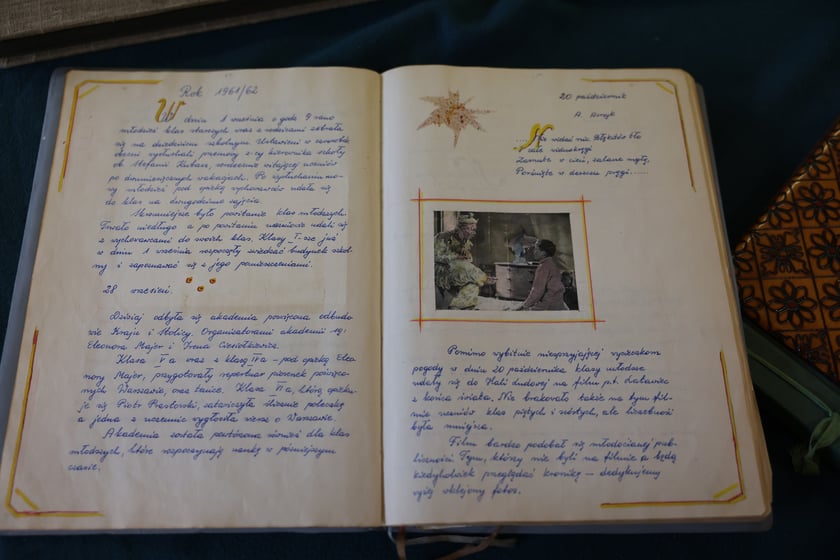 Rok 1961/62
W dniu 1 września o godz. 9 rano
młodzież klas starszych wraz z rodzicami zebrała
się na dziedzińcu szkolnym. Ustawieni w czworobok
dzieci wysłuchali przemowy z-cy kierownika szkoły
ob. Stefanii Kubas, serdecznie witającej uczniów
po dwumiesięcznych wakacjach. Po wysłuchaniu mo-
wy młodzież pod opieką wychowawców udała się
do klas na dwugodzinne zajęcia.
Skromniejsze było powitanie klas młodszych.
Trwało niedługo a po powitaniu uczniowie udali się
z wychowawcami do swoich klas. Klasy I-sze już
w dniu 1 września rozpoczęły zwiedzać budynek szkol-
ny i zapoznawać się z jego pomieszczeniami.
28 wrzesień.
Dzisiaj odbyła się akademia poświęcona odbudo-
wie Kraju i Stolicy. Organizatorami akademii są:
Eleonora Majer i Irena
Klasa V a wraz z klasą IV a - pod opieką Eleo
nory Majer, przygotowały repertuar piosenek poświęco-
nych Warszawie, oraz tańce. Klasa VI a, którą opieku-
je się Piotr zatańczyła ślicznie poleczkę
a jedna z uczennic wygłosiła wiersz o Warszawie.
Akademia została powtórzona również dla klas
młodszych, które rozpoczynają naukę w późniejszym
czasie.
20 październik
A.
..... Nie widać nic
widnokręgi
w cień, zalane mgłą,
w deszczu pręgi......
Pomimo wybitnie niesprzyjającej wycieczkom
pogody w dniu 20 października klasy młodsze
udały się do Hali Ludowej na film p.t. Latawiec
z końca świata. Nie brakowało także na tym fil-
mie uczniów klas piątych i szóstych, ale liczebność
była mniejsza.
Film bardzo podobał się młodocianej pub-
liczności. Tym, którzy nie byli na filmie a będą
kiedykolwiek przeglądać kronikę - dedykujemy
wyżej wklejony fotos.